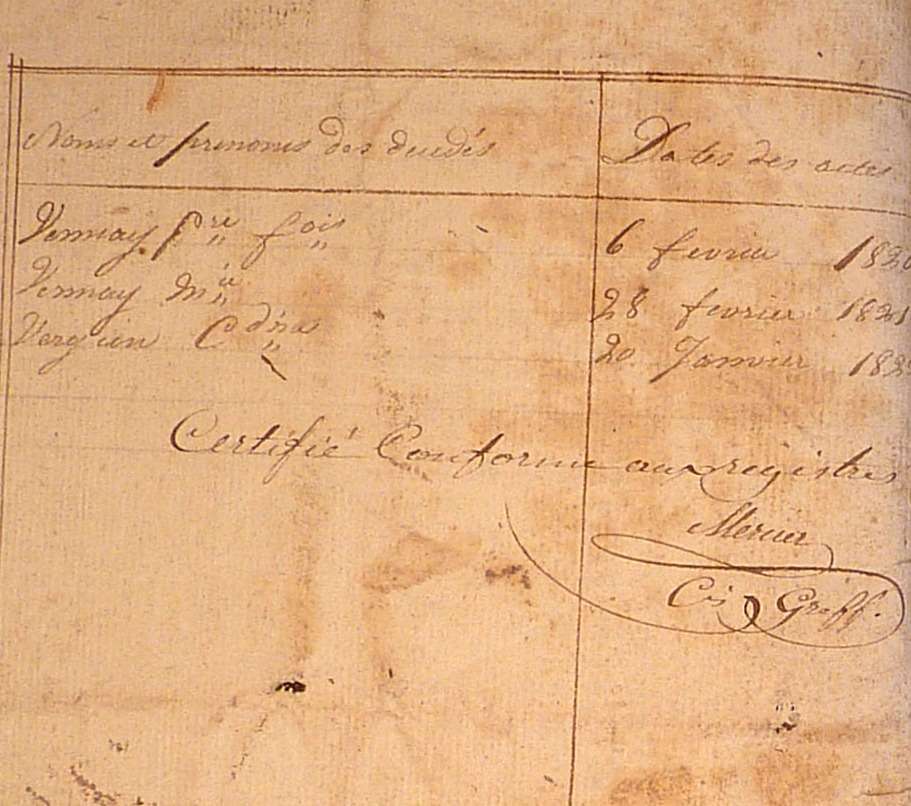 Noms et prenoms des decedés Dates des actes
Vernay P re f ois 6 fevrier 182
Vernay M ie 28 fevrier 1821
Vergien C d ine 20 Janvier 182
Certifié Conforme aux registres
Mercier
Cis Greff.